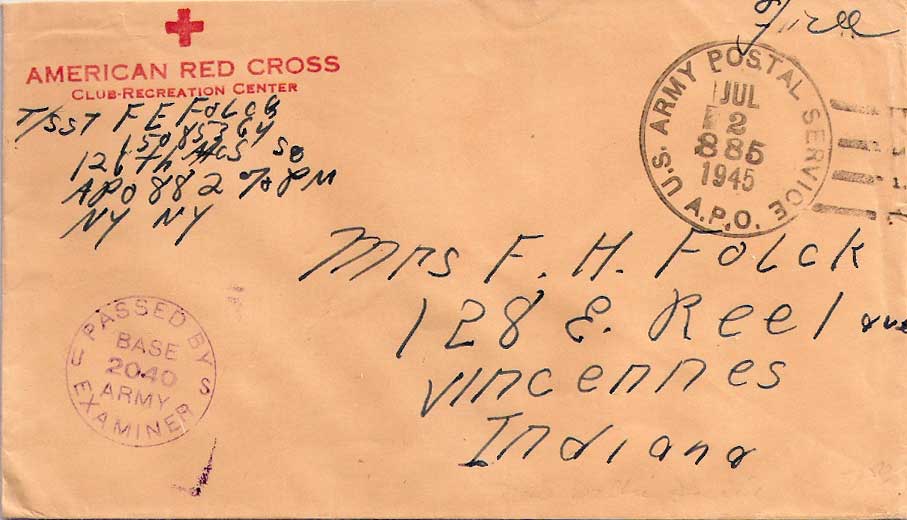 AMERICAN RED CROSS
CLUB-RECREATION CENTER
T/SGT F E Folck
15085364
126th ACS Sq
APO 882 % PM
NY NY
Free
U.S. ARMY POSTAL SERVICE A.P.O.
JUL
2
885
1945
Mrs F. H. Folck
128 E. Reel Ave
Vincennes
Indiana
PASSED BY
U S
BASE
2040
ARMY
EXAMINER